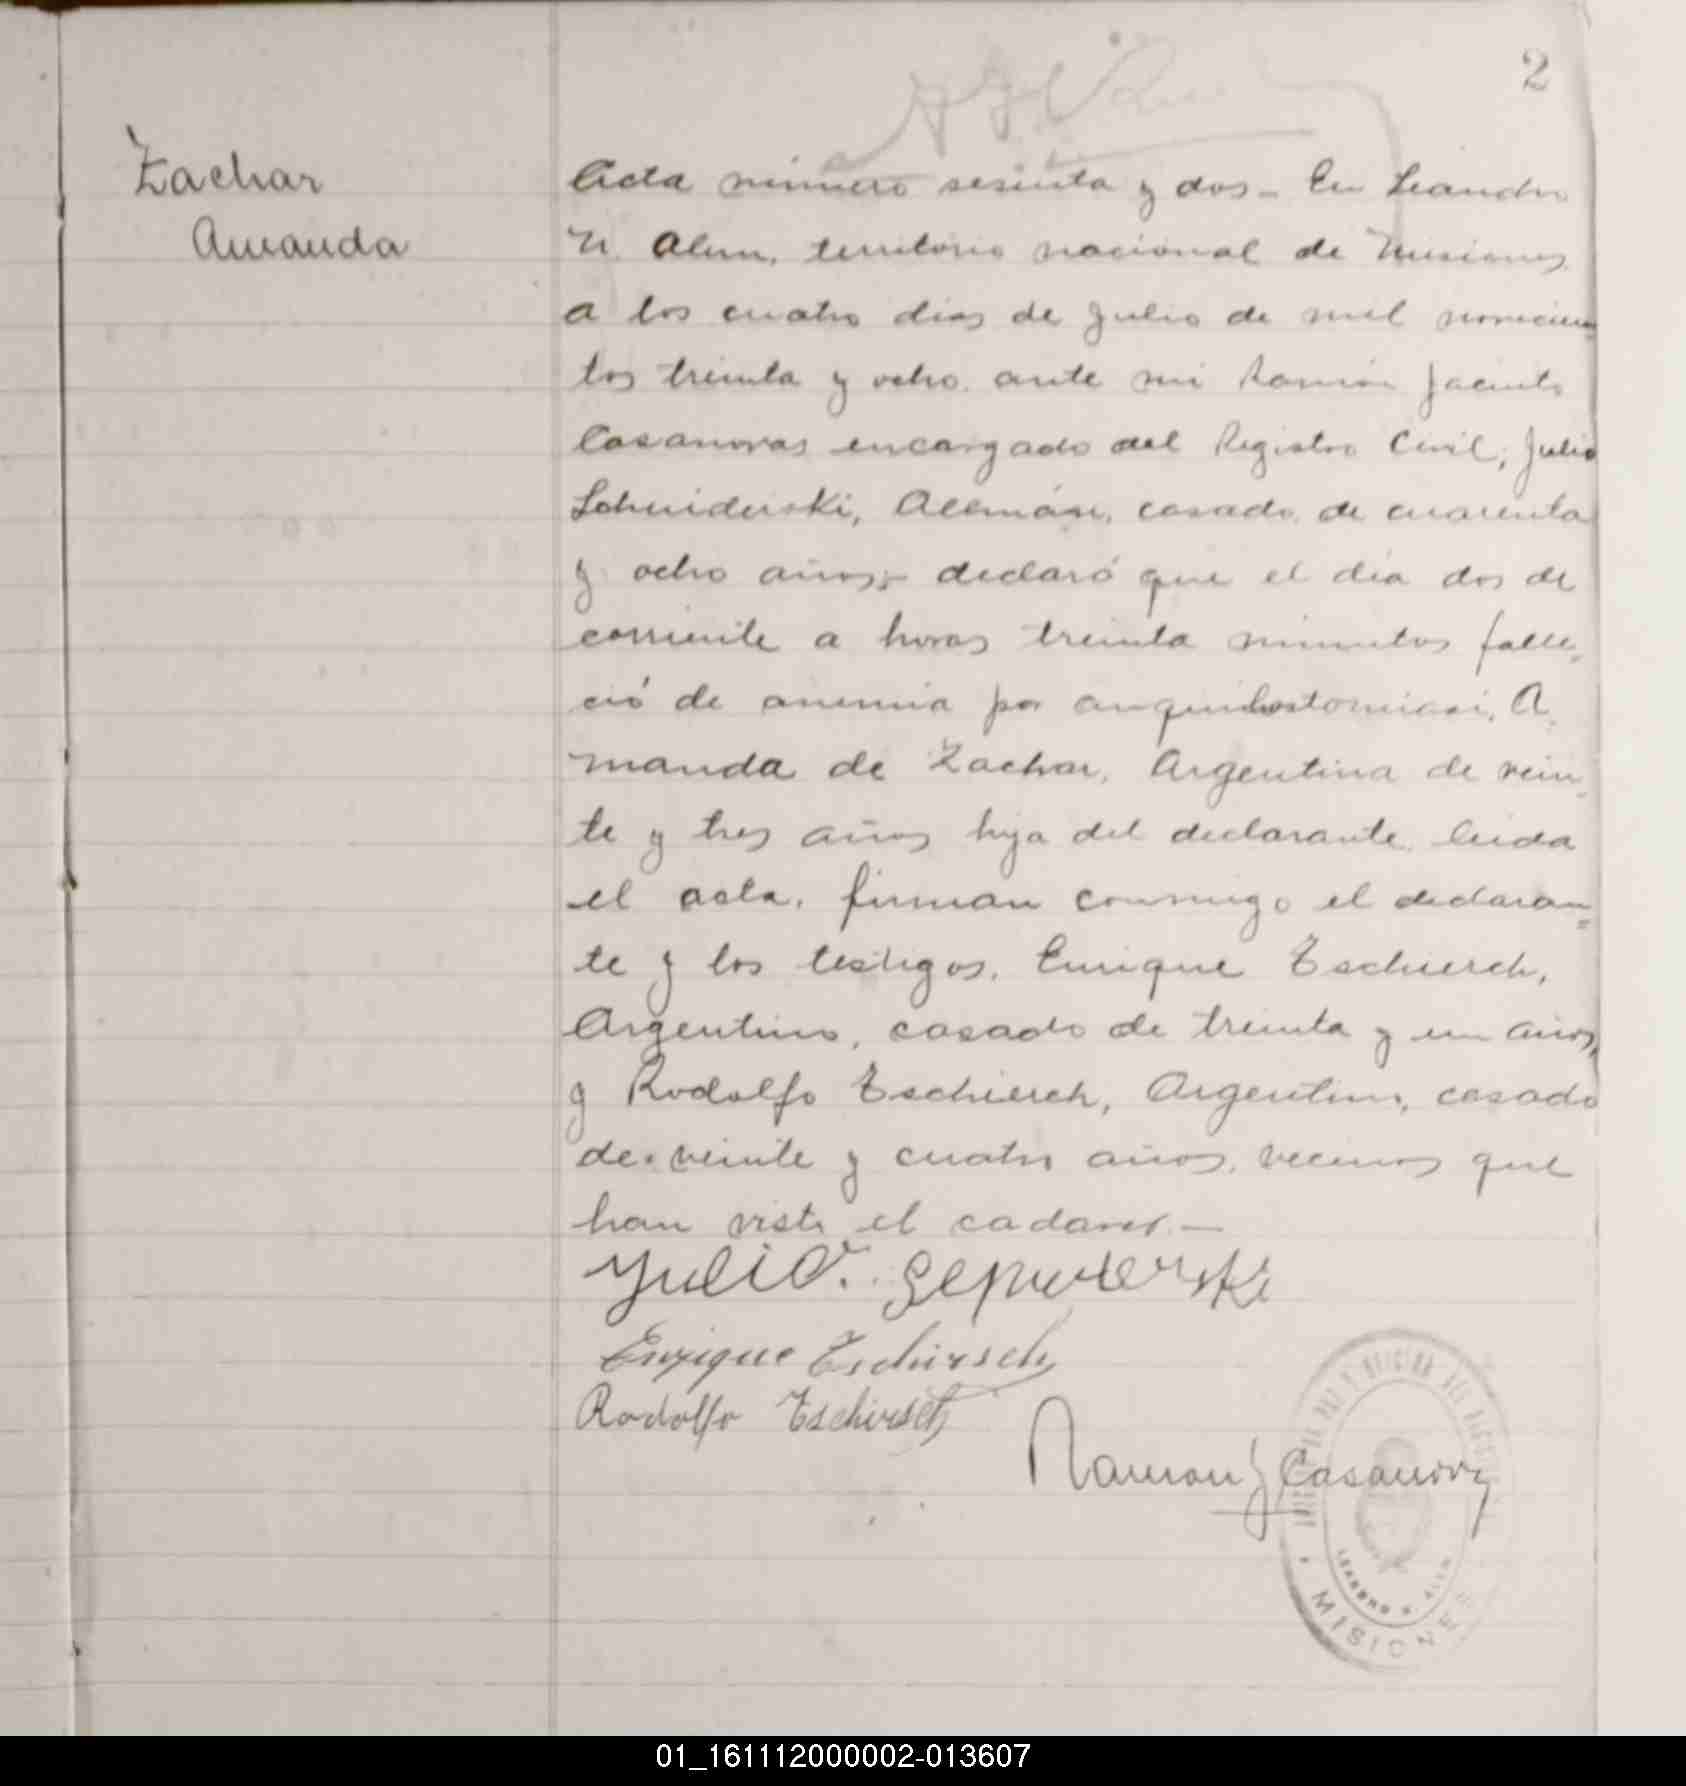 2
Zachar
Amanda
Acta número sesenta y dos - En Leandro
N. Alem, territorio nacional de Misiones
a los cuatro dias de Julio de mil novecien=
tos treinta y ocho. ante mi Ramón Jacinto
Casanovas encargado del Registro Civil, Julio
Schniderski, Alemán, casado, de cuarenta
y ocho años,- declaró que el dia dos de
corriente a horas treinta minutos falle=
ció de anemia por anquilostomiasi, A=
manda de Zachar, Argentina de vein=
te y tres años hija del declarante, leida
el acta, firman conmigo el declaran=
te y los testigos, Enrique Tschiersch,
Argentino, casado de treinta y un años,
y Rodolfo Tschiersch, Argentino, casado
de veinte y cuatro años, vecinos que
han visto el cadaver.-
Julio.
Enrique Tschirsch
Rodolfo Tschirsch
Ramon J Casanova
LEANDRO N. ALEM
MISIONES
01_161112000002-013607